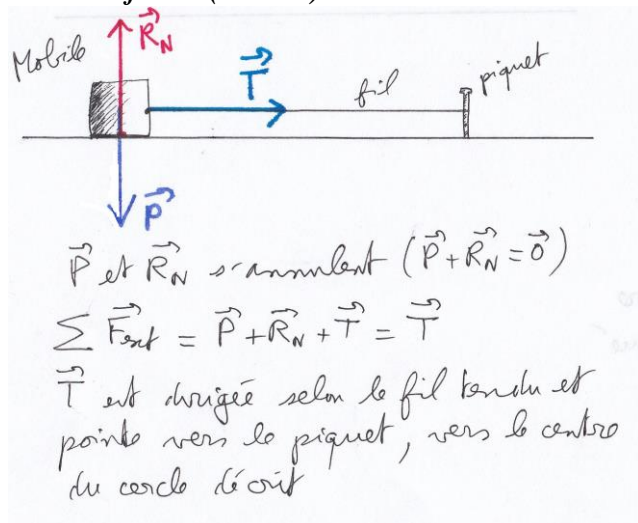 Mobile
R_N
T
fil
piquet
P
P et R_N s'annulent (P + R_N = 0)
∑ Fext = P + R_N + T = T
T est dirigée selon le fil tendu et
pointe vers le piquet, vers le centre
du cercle décrit